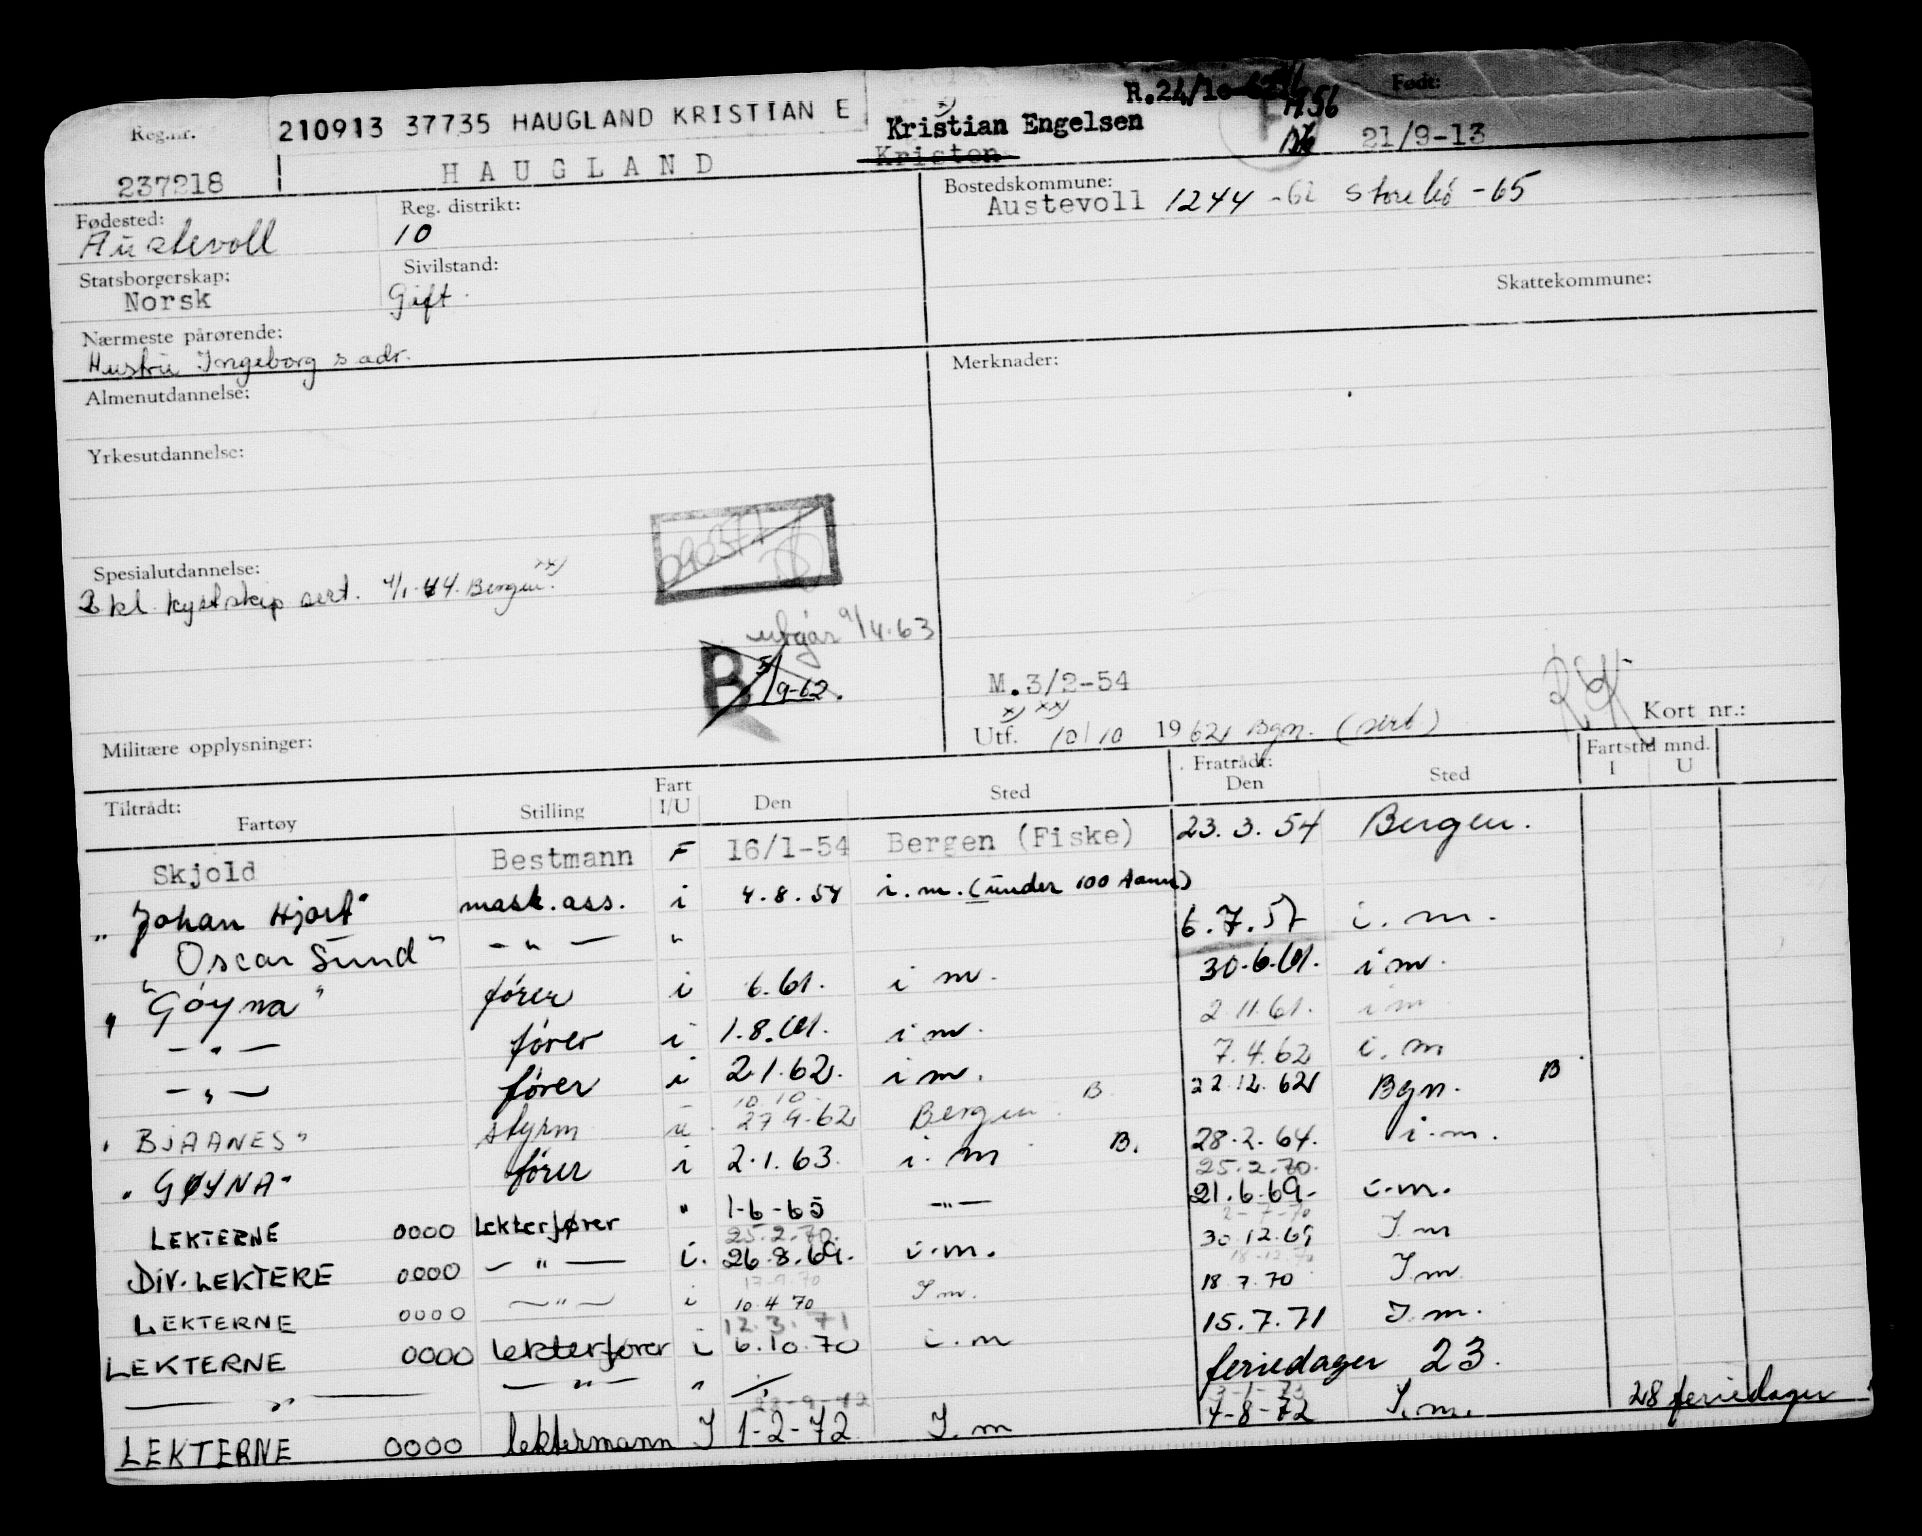 R.24/10-62
1956
Født:
Reg.nr.
210913 37735 HAUGLAND KRISTIAN E
x) Kristian Engelsen
21/9-13
237218
HAUGLAND
Kristen
Fødested:
Reg. distrikt:
Bostedskommune:
Austevoll 1244 -62 Storebö -65
Austevoll
10
Statsborgerskap:
Sivilstand:
Norsk
Gift.
Skattekommune:
Nærmeste pårørende:
Hustru Ingeborg s adr.
Merknader:
Almenutdannelse:
Yrkesutdannelse:
Spesialutdannelse:
2 kl. kystskip sert. 4/1-44. Bergen. xx)
utgår 9/4.63
B 5/9-62.
M.3/2-54
x) xx)
Utf. 10/10 1962 Bgn. (sert)
Kort nr.:
Militære opplysninger:
Tiltrådt:
Fratrådt:
Fartstid mnd.
Fartøy
Stilling
Fart I/U
Den
Sted
Den
Sted
I U
Skjold Bestmann F 16/1-54 Bergen (Fiske) 23.3.54 Bergen.
" Johan Hjort" mask.ass. i 4.8.54 i.m. (under 100 tonn)
Oscar Sund" - " - " 6.7.57 i.m.
" "Göyna" fører i 6.61. i m. 30.6.61. i m.
- " - fører i 1.8.61. i m. 2.11.61. i m
- " - fører i 2.1.62. i m. 7.4.62 i.m
10.10.
" BJAANES" styrm u 27.9-62 Bergen. B 22.12.62 Bgn. B
" GØYNA" fører i 2.1.63. i.m B. 28.2.64. i.m.
25.2.70.
LEKTERNE 0000 Lekterfører " 1-6-65 - " - 21.6.69. i.m.
25.2.70. 2-7-70
DIV. LEKTERE 0000 - " - i. 26.8.69. i.m. 30.12.69 I.m
17.9.70 18.12.70
LEKTERNE 0000 - " - i 10.4.70 I.m. 18.7.70 I.m.
12.3.71
LEKTERNE 0000 lekterfører i 6.10.70 i.m 15.7.71 I.m.
- " - - " - " feriedager 23.
28-9-72 3-1-73
LEKTERNE 0000 lektermann I 1-2-72 I.m 4-8-72 I.m. 28 feriedager